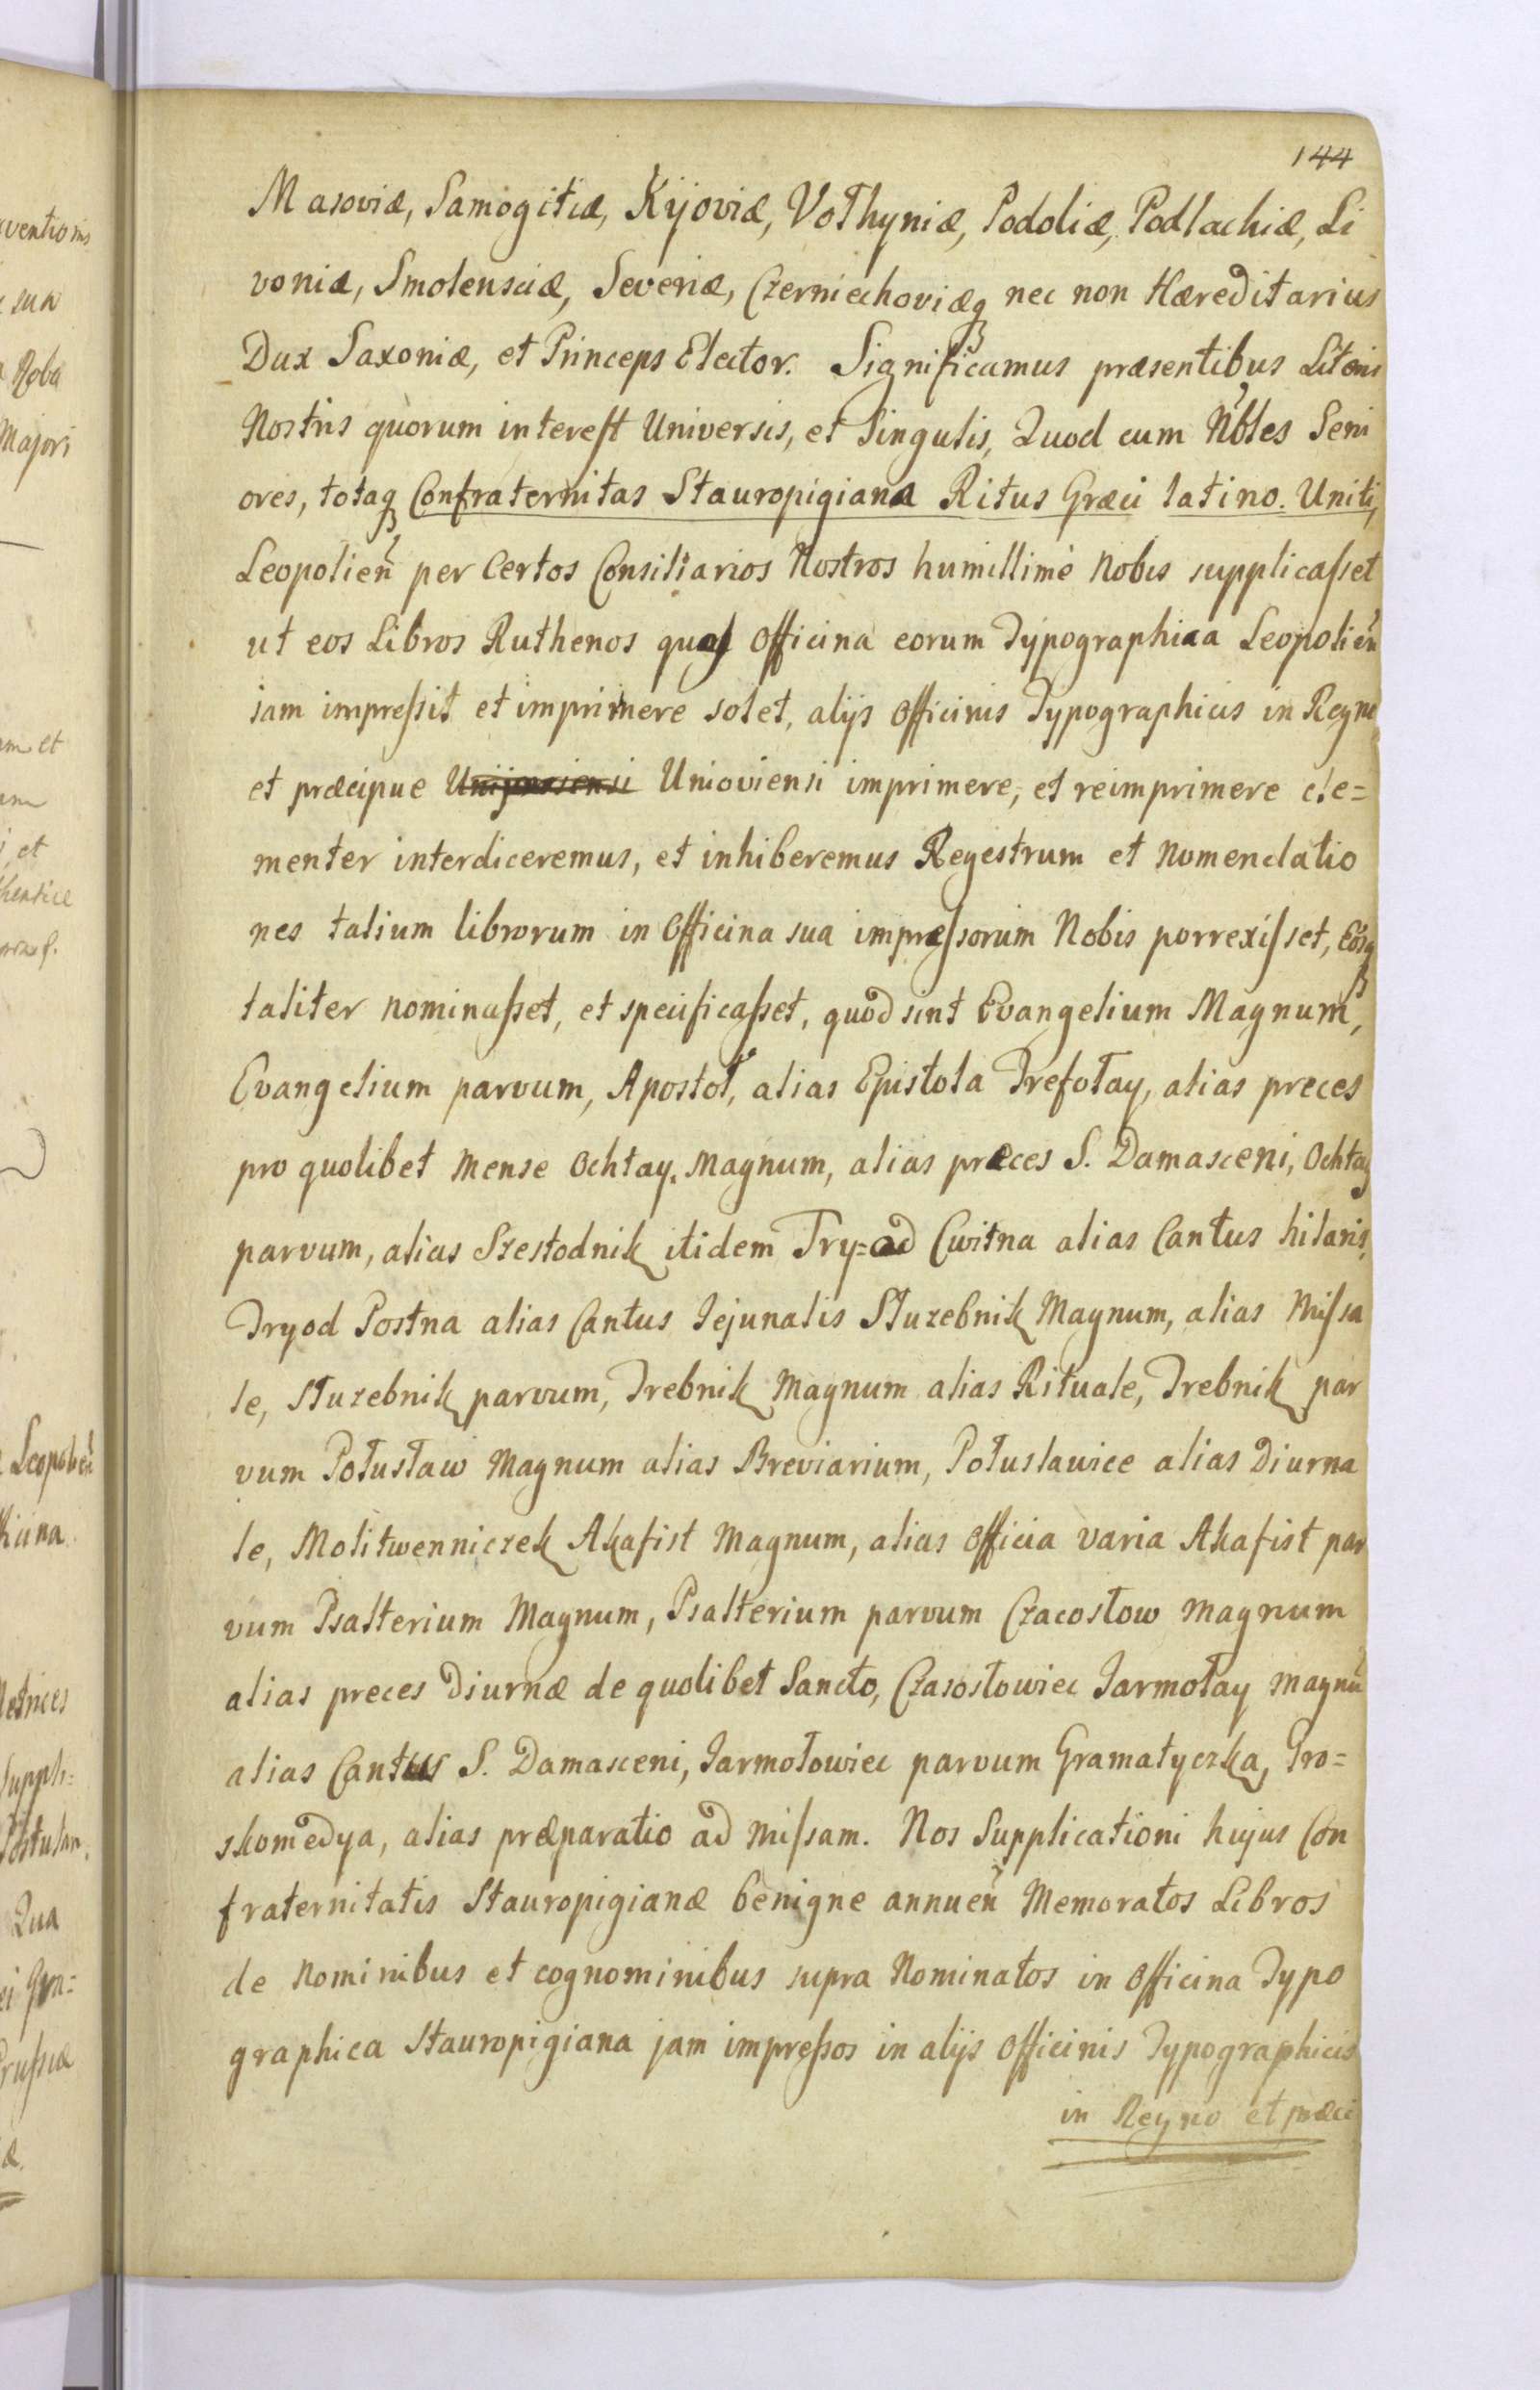 144
Masoviæ, Samogitiæ, Kijoviæ, Vołhyniæ, Podoliæ, Podlachiæ, Li
voniæ, Smolensciæ, Severiæ, Czerniechoviæq nec non Hæreditarius
Dux Saxoniæ, et Princeps Elector. Significamus præsentibus Literis
Nostris quorum interest Universis, et Singulis, Quod cum Nbles Seni
ores, totaq Confraternitas Stauropigiana Ritus Græci latino. Uniti,
Leopolieñ per Certos Consiliarios Nostros humillimè Nobis supplicasset
ut eos Libros Ruthenos quos Officina eorum Typographica Leopolieñ
iam impressit et imprimere solet, alijs Officinis Typographicis in Regno
et præcipue Unijoviensi Unioviensi imprimere, et reimprimere cle=
menter interdiceremus, et inhiberemus Regestrum et Nomenclatio
nes talium librorum in Officina sua impressorum Nobis porrexisset, Eosq
taliter nominasset, et specificasset, quod sint Evangelium Magnum,
Evangelium parvum, Apostoł, alias Epistola Trefołay, alias preces
pro quolibet Mense Ochtay. Magnum, alias præces S. Damasceni, Ochtay
parvum, alias Szestodnik itidem Try=od Cwitna alias Cantus hilaris,
Tryod Postna alias Cantus Jejunalis Służebnik Magnum, alias Missa
le, Służebnik parvum, Trebnik Magnum alias Rituale, Trebnik par
vum Połusław Magnum alias Breviarium, Połusławiec alias Diurna
le, Molitwenniczek Akafist Magnum, alias Officia varia Akafist par
vum Psalterium Magnum, Psalterium parvum Czacosłow Magnum
alias preces Diurnæ de quolibet Sancto, Czasosłowiec Jarmołay Magnũ
alias Cantus S. Damasceni, Jarmołowiec parvum Gramatyczka, Pro=
skomedya, alias præparatio ad Missam. Nos Supplicationi hujus Con
fraternitatis Stauropigianæ benigne annueñ Memoratos Libros
de Nominibus et cognominibus supra Nominatos in Officina Typo
graphica Stauropigiana jam impressos in alijs Officinis Typographicis
in Regno et præci